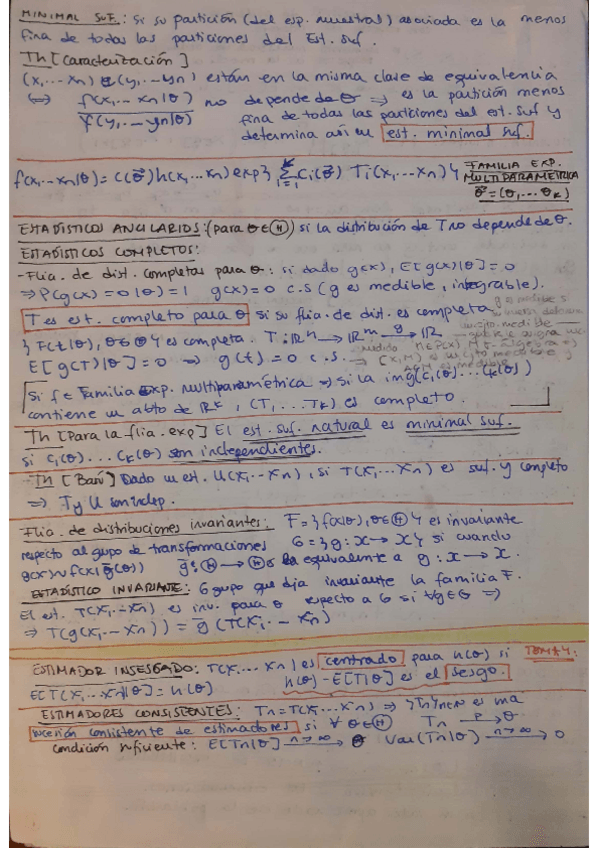 MINIMAL SUF.: Si su partición (del esp. muestral) asociada es la menos
fina de todas las particiones del Est. suf.
Th [Caracterización]
(x1,...xn) e (y1...yn) están en la misma clase de equivalencia
⇔ f(x1,...xn|θ) / f(y1,...yn|θ) no depende de θ ⇒ es la partición menos
fina de todas las particiones del est. suf y
determina así un est. minimal suf.
f(x1...xn|θ) = C(θ⃗)h(x1,...xn) exp{ Σ Ci(θ⃗) Ti(x1,...xn)} FAMILIA EXP.
MULTIPARAMETRICA
θ⃗=(θ1,...θk)
ESTADÍSTICOS ANCILARIOS: (para θ∈Θ) si la distribución de T no depende de θ.
ESTADÍSTICOS COMPLETOS:
-Flia. de dist. completas para θ: si dado g(x), E[g(x)|θ]=0
⇒ P(g(x)=0|θ)=1 g(x)=0 c.s (g es medible, integrable).
T es est. completo para θ si su flia. de dist. es completa
{F(t|θ), θ∈Θ} es completa. T: ℝⁿ → ℝᵐ →g ℝ
E[g(T)|θ]=0 ⇒ g(t)=0 c.s.
Si f ∈ Familia Exp. multiparamétrica ⇒ si la img(C1(θ)...Ck(θ))
contiene un abto de ℝᵏ, (T1,...Tk) es completo.
Th [Para la flia. exp] El est. suf. natural es minimal suf.
si C1(θ)...Ck(θ) son independientes.
-Th [Basú] Dado un est. U(x1...xn), si T(x1...xn) es suf. y completo
⇒ T y U son indep.
Flia. de distribuciones invariantes: F={f(x|θ), θ∈Θ} es invariante
respecto al grupo de transformaciones G={g: X→X} si cuando
g(x)∼f(x|g̅(θ)) g̅: Θ→Θ es la equivalente a g: X→X.
ESTADÍSTICO INVARIANTE: G grupo que deja invariante la familia F.
El est. T(x1,...xn) es inv. para θ respecto a G si ∀g∈G ⇒
⇒ T(g(x1,...xn)) = g̅(T(x1...xn))
ESTIMADOR INSESGADO: T(x1,...xn) es centrado para h(θ) si TEMA 4:
E[T(x1...xn)|θ]=h(θ) h(θ)-E[T|θ] es el sesgo.
ESTIMADORES CONSISTENTES: Tn=T(x1...xn) ⇒ {Tn}n∈N es una
sucesión consistente de estimadores si ∀θ∈Θ Tn →P θ
condición suficiente: E[Tn|θ] →n→∞ θ Var(Tn|θ) →n→∞ 0